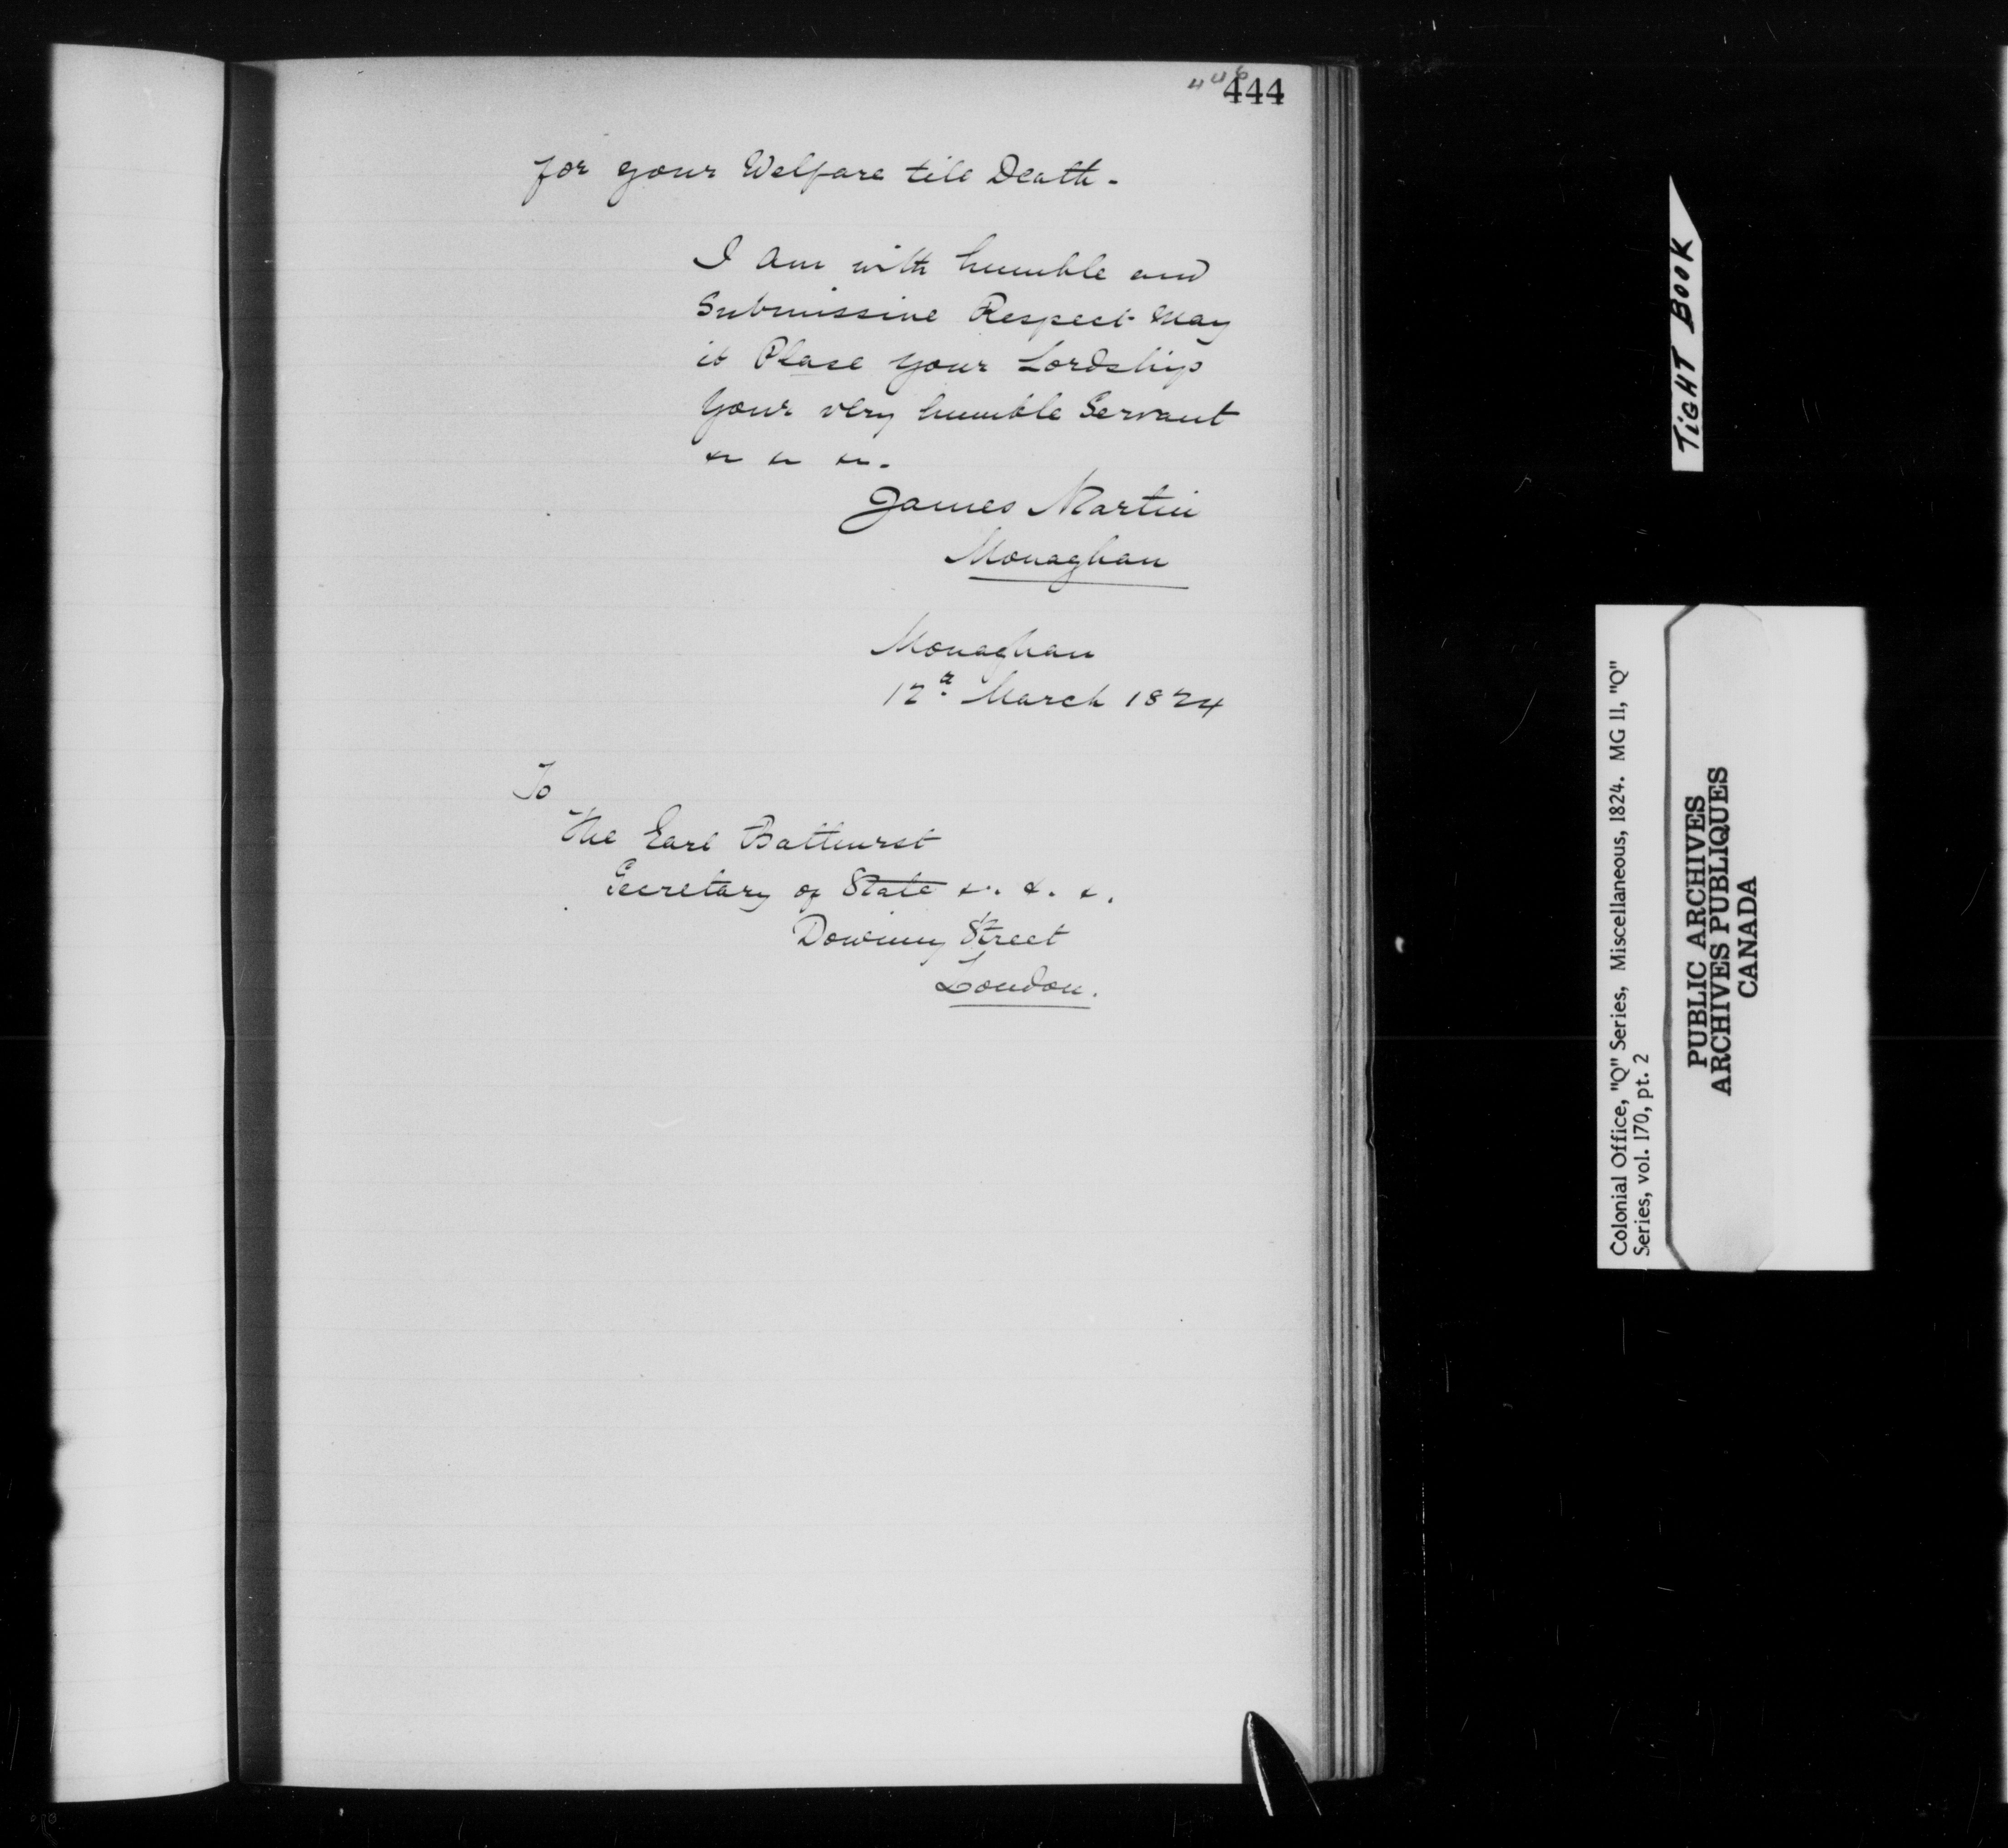 446
444
for your Welfare till Death -
I am with humble and
Submissive Respect may
it Plase your Lordship
Your very humble Servant
&c &c &c.
James Martin
Monaghan
Monaghan
12th March 1824
To
The Earl Bathurst
Secretary of State &c. &. &.
Downing Street
London.
TIGHT BOOK
Colonial Office, "Q" Series, Miscellaneous, 1824. MG 11, "Q"
Series, vol. 170, pt. 2
PUBLIC ARCHIVES
ARCHIVES PUBLIQUES
CANADA